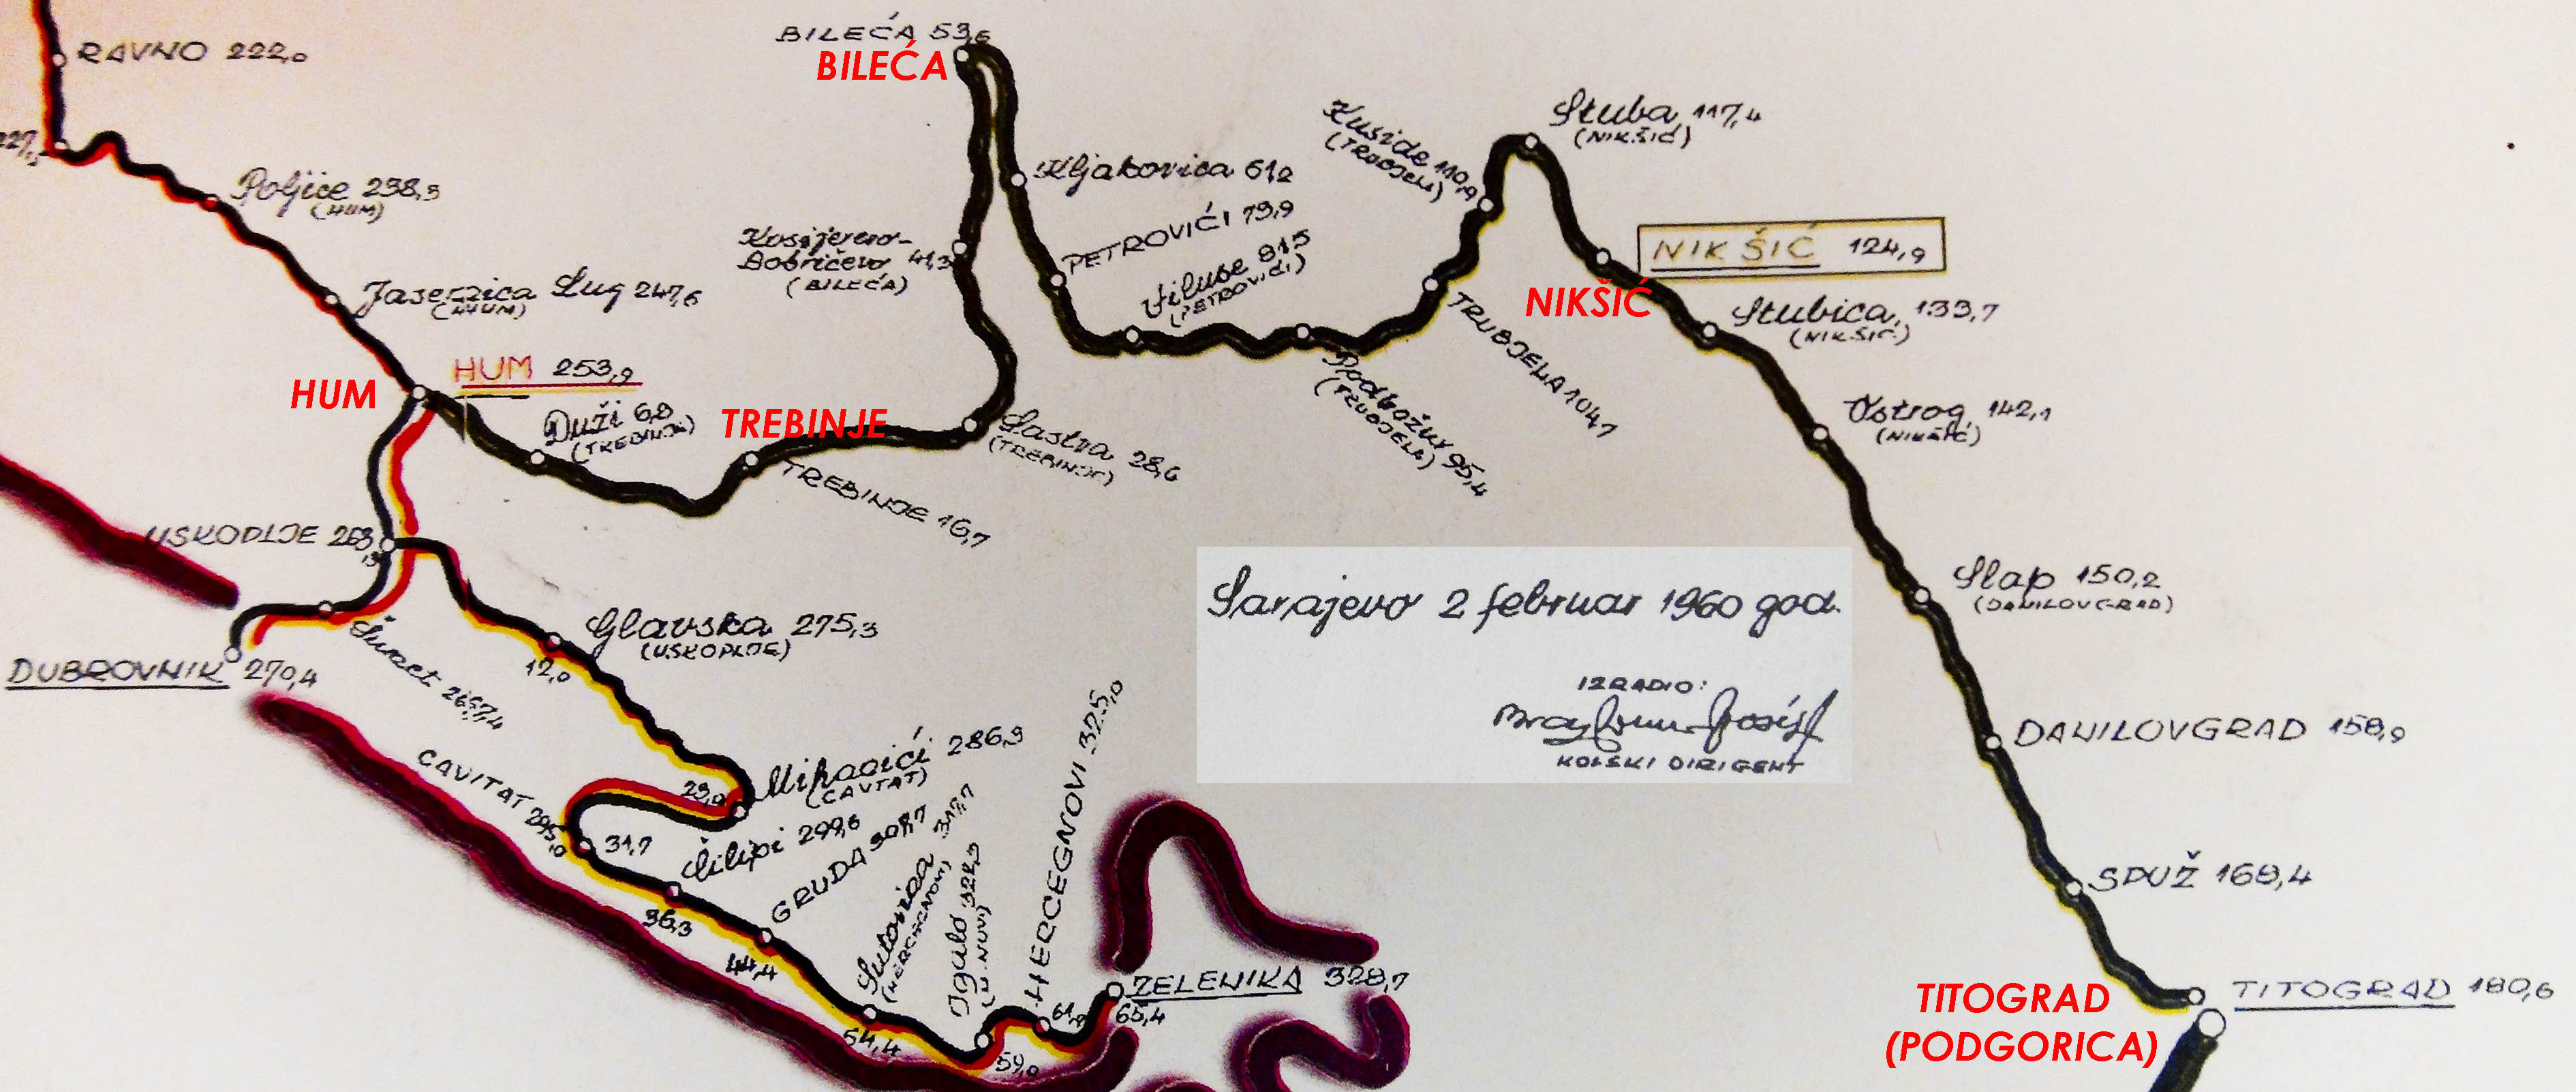 RAVNO 222,0
Poljice 238,3
(HUM)
Jasenica Lug 247,6
(HUM)
HUM
HUM 253,9
Duži 6,8
(TREBINJE)
TREBINJE
TREBINJE 16,7
Lastva 28,6
(TREBINJE)
Kosijerevo-
Dobričevo 41,3
(BILEĆA)
BILEĆA 53,6
BILEĆA
Kljakovica 61,2
PETROVIĆI 73,9
Viluse 81,5
(PETROVIĆI)
Podbožur 95,4
(TRUBJELA)
TRUBJELA 104,7
Kuside 110,9
(TRUBJELA)
Stuba 117,4
(NIKŠIĆ)
NIKŠIĆ 124,9
NIKŠIĆ
Stubica 133,7
(NIKŠIĆ)
Ostrog 142,1
(NIKŠIĆ)
Slap 150,2
(DANILOVGRAD)
DANILOVGRAD 158,9
SPUŽ 168,4
TITOGRAD 180,6
TITOGRAD
(PODGORICA)
USKOPLJE 263,3
DUBROVNIK 270,4
Glavska 275,3
(USKOPLJE)
12,0
Mihanići 286,9
(CAVTAT)
CAVITAT 295,0
31,7
Čilipi 299,6
36,3
GRUDA 307,7 317,7
44,4
Sutorina
(HERCEGNOVI)
54,4
Igalo 322,3
(H. NOVI)
59,0
HERCEGNOVI 325,0
ZELENIKA 328,7
65,4
Sarajevo 2 februar 1960 god.
IZRADIO:
KOLSKI DIRIGENT